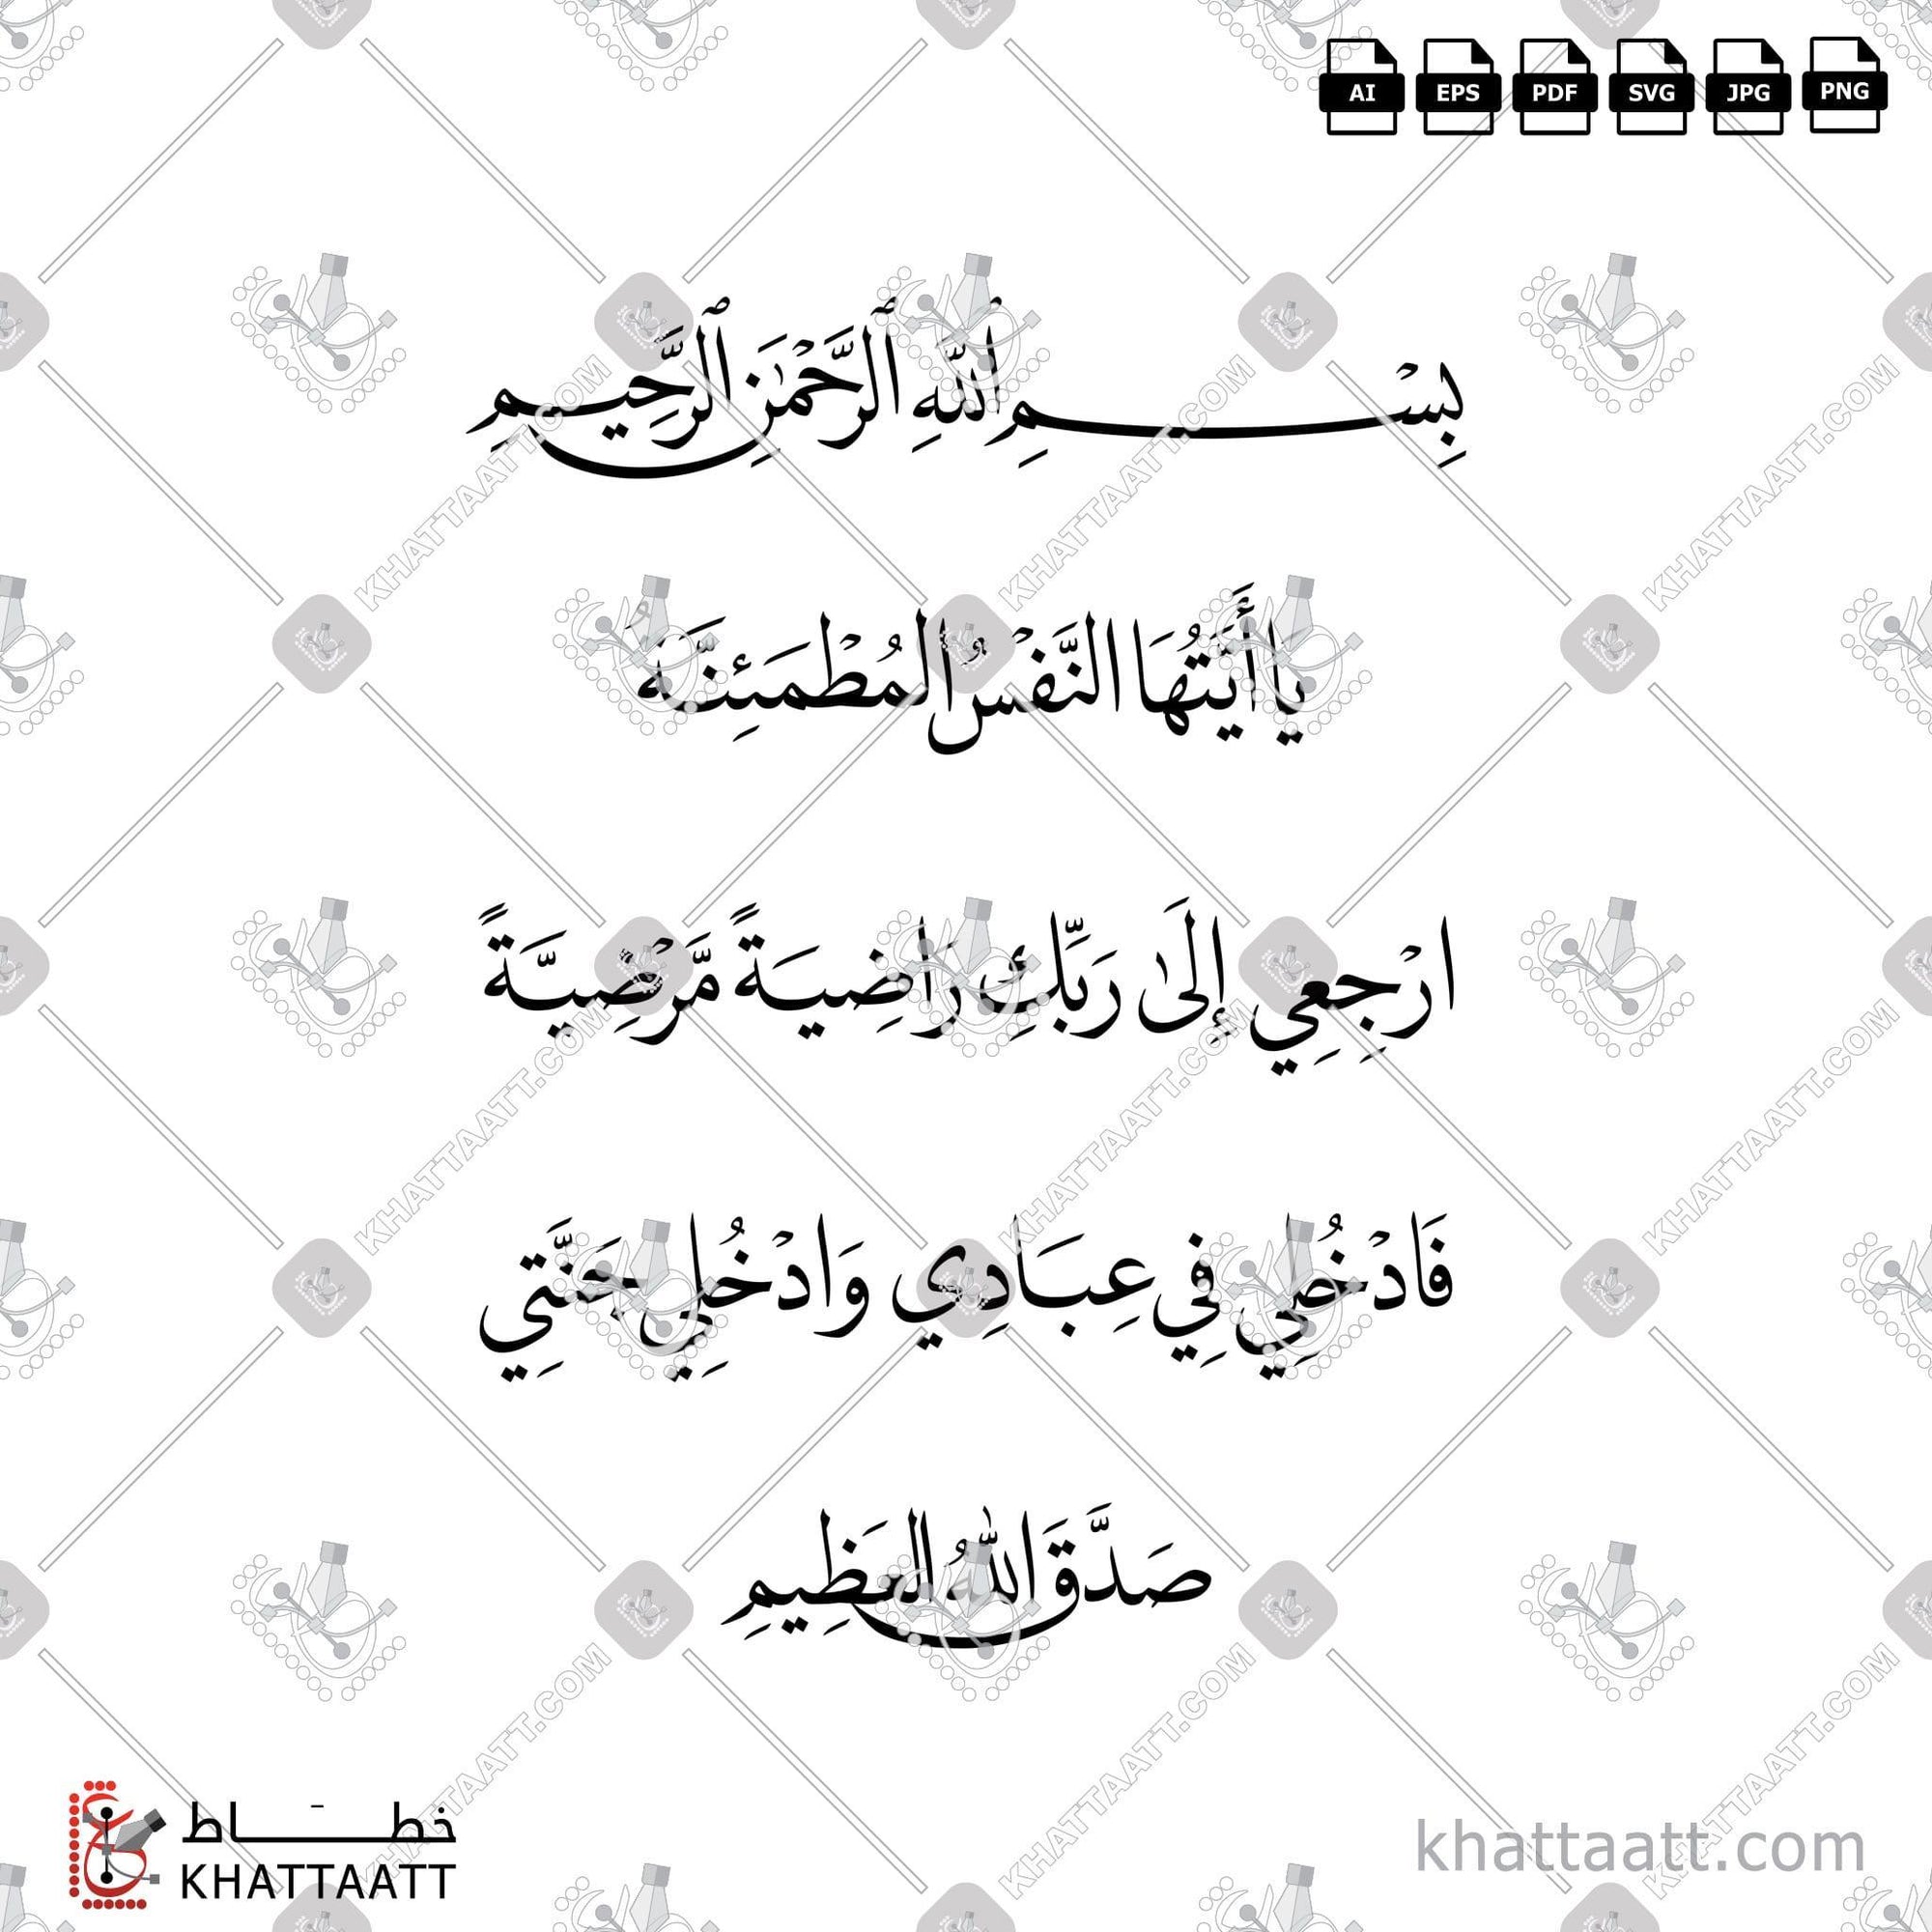 AI EPS PDF SVG JPG PNG
بِسْمِ ٱللَّهِ ٱلرَّحْمَٰنِ ٱلرَّحِيمِ
يا أَيَّتُهَا النَّفْسُ المُطْمَئِنَّةُ
ارْجِعِي إِلَىٰ رَبِّكِ رَاضِيَةً مَّرْضِيَّةً
فَادْخُلِي فِي عِبَادِي وَادْخُلِي جَنَّتِي
صَدَّقَ اللّٰهُ العَظِيمِ
خطَاط
KHATTAATT
khattaatt.com
KHATTAATT.COM